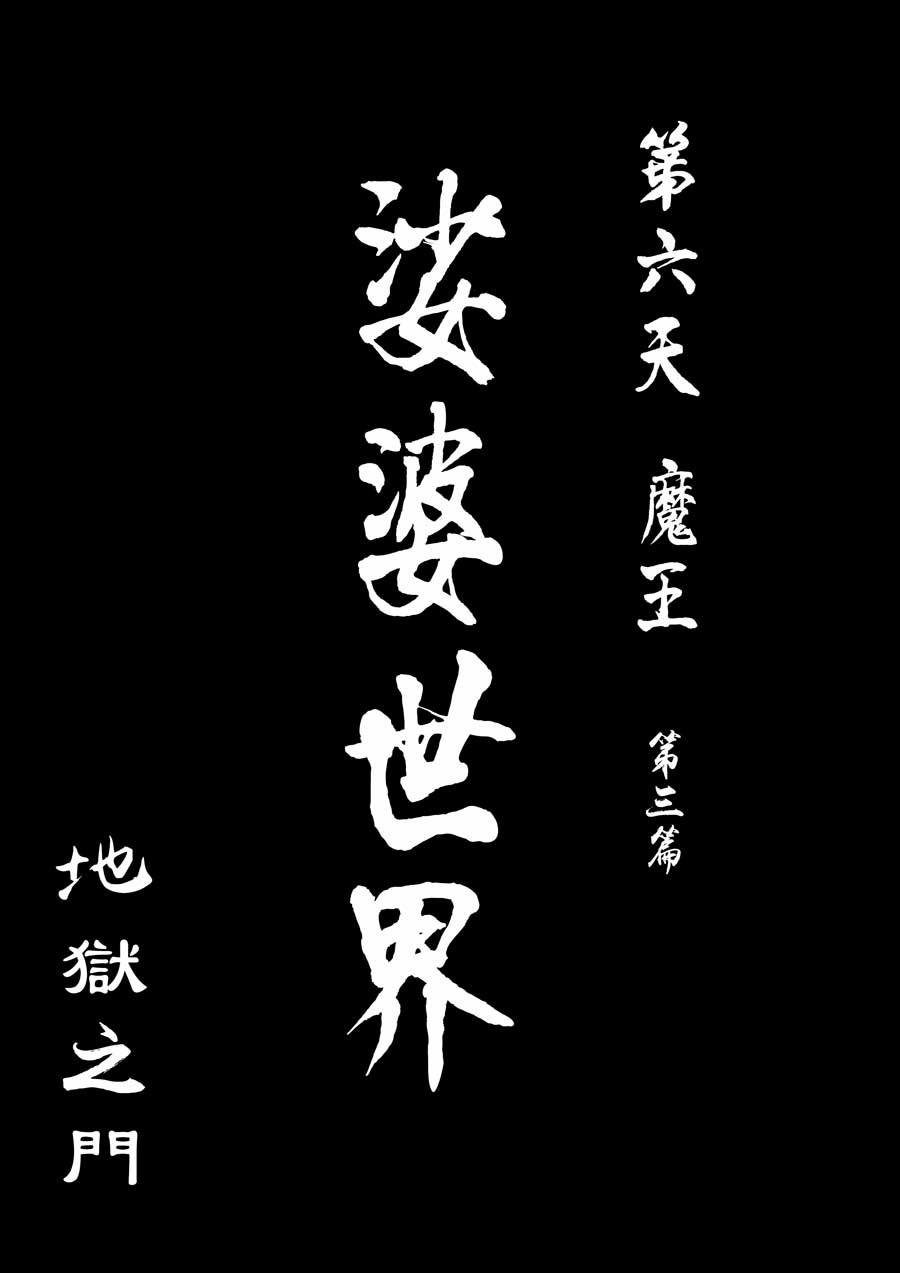 第六天 魔王 第三篇
娑婆世界
地獄之門